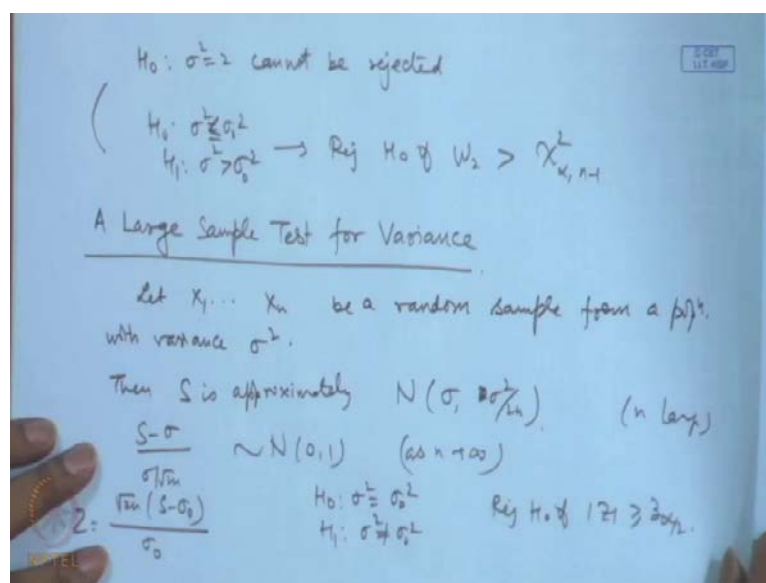 H₀: σ² = 2 cannot be rejected
© CET
I.I.T. KGP
H₀: σ² ≤ σ₀²
H₁: σ² > σ₀² → Rej H₀ if W₂ > χ²α, n-1
A Large Sample Test for Variance
Let X₁... Xₙ be a random sample from a popⁿ.
with variance σ².
Then S is approximately N(σ, σ²/2n) (n large)
S-σ / σ/√2n ~ N(0,1) (as n→∞)
Z = √2n (S-σ₀) / σ₀ H₀: σ² = σ₀² Rej H₀ if |Z| ≥ zα/2.
H₁: σ² ≠ σ₀²
NPTEL